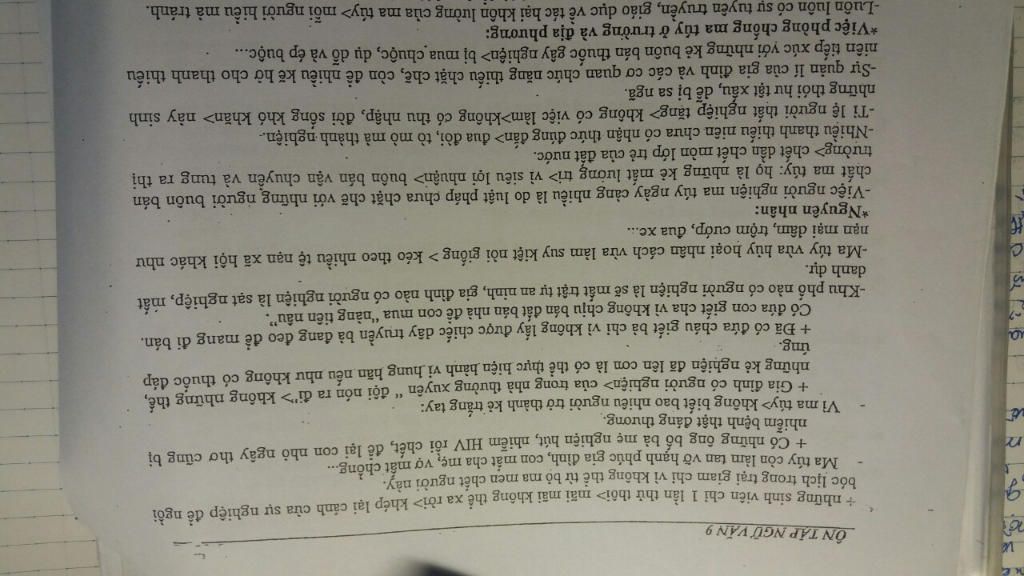 ÔN TẬP NGỮ VĂN 9
+ những sinh viên chỉ 1 lần thử thôi> mãi mãi không thể xa rời> khép lại cánh của sự nghiệp để ngồi
bóc lịch trong trại giam chỉ vì không thể từ bỏ ma men chết người này.
- Ma túy còn làm tan vỡ hạnh phúc gia đình, con mất cha mẹ, vợ mất chồng...
+ Có những ông bố bà mẹ nghiện hút, nhiễm HIV rồi chết, để lại con nhỏ ngây thơ cũng bị
nhiễm bệnh thật đáng thương.
- Vì ma túy> không biết bao nhiêu người trở thành kẻ trắng tay:
+ Gia đình có người nghiện> của trong nhà thường xuyên " đội nón ra đi"> không những thế,
những kẻ nghiện đã lên cơn là có thể thực hiện hành vi hung hãn nếu như không có thuốc đáp
ứng.
+ Đã có đứa cháu giết bà chỉ vì không lấy được chiếc dây truyền bà đang đeo để mang đi bán.
Có đứa con giết cha vì không chịu bán đất bán nhà để con mua "nàng tiên nâu".
-Khu phố nào có người nghiện là sẽ mất trật tự an ninh, gia đình nào có người nghiện là sạt nghiệp, mất
danh dự.
-Ma túy vừa hủy hoại nhân cách vừa làm suy kiệt nòi giống > kéo theo nhiều tệ nạn xã hội khác như
nạn mại dâm, trộm cướp, đua xe...
*Nguyên nhân:
-Việc người nghiện ma túy ngày càng nhiều là do luật pháp chưa chặt chẽ với những người buôn bán
chất ma túy: họ là những kẻ mất lương tri> vì siêu lợi nhuận> buôn bán vận chuyển và tung ra thị
trường> chết dần chết mòn lớp trẻ của đất nước.
-Nhiều thanh thiếu niên chưa có nhận thức đúng đắn> đua đòi, tò mò mà thành nghiện.
-Tỉ lệ người thất nghiệp tăng> không có việc làm>không có thu nhập, đời sống khó khăn> nảy sinh
những thói hư tật xấu, dễ bị sa ngã.
-Sự quản lí của gia đình và các cơ quan chức năng thiếu chặt chẽ, còn để nhiều kẽ hở cho thanh thiếu
niên tiếp xúc với những kẻ buôn bán thuốc gây nghiện> bị mua chuộc, dụ dỗ và ép buộc....
*Việc phòng chống ma túy ở trường và địa phương:
-Luôn luôn có sự tuyên truyền, giáo dục về tác hại khôn lường của ma túy> mỗi người hiểu mà tránh.